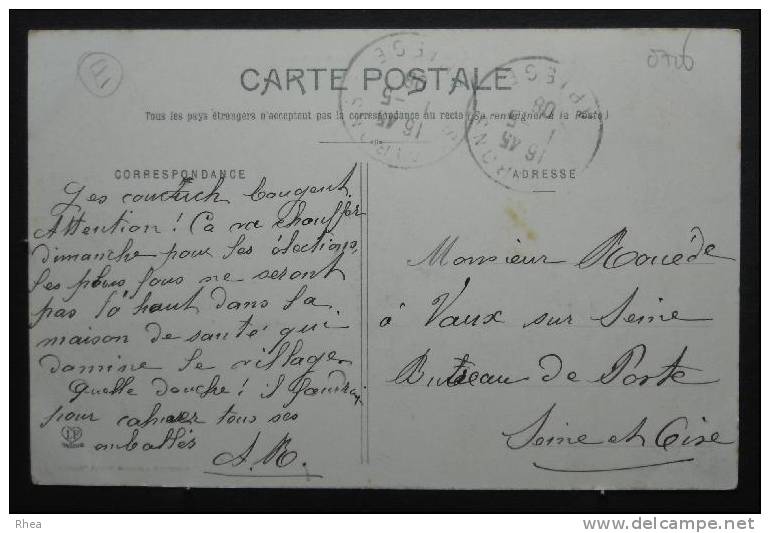 CARTE POSTALE
Tous les pays étrangers n'acceptent pas la correspondance au recto (Se renseigner à la Poste)
CORRESPONDANCE
Les bougent.
Attention! Ca va chauffer
dimanche pour les élections,
les plus fous ne seront
pas là haut dans la
maison de santé qui
domine le village
Quelle douche! il faudrait
pour calmer tous ses
emballés
A.R.
ADRESSE
Monsieur Rouède
à Vaux sur Seine
Bureau de Poste
Seine et Oise
16 45
1 -5
08
ARIEGE
16 45
1 -5
08
ARIEGE
Rhea
www.delcampe.net